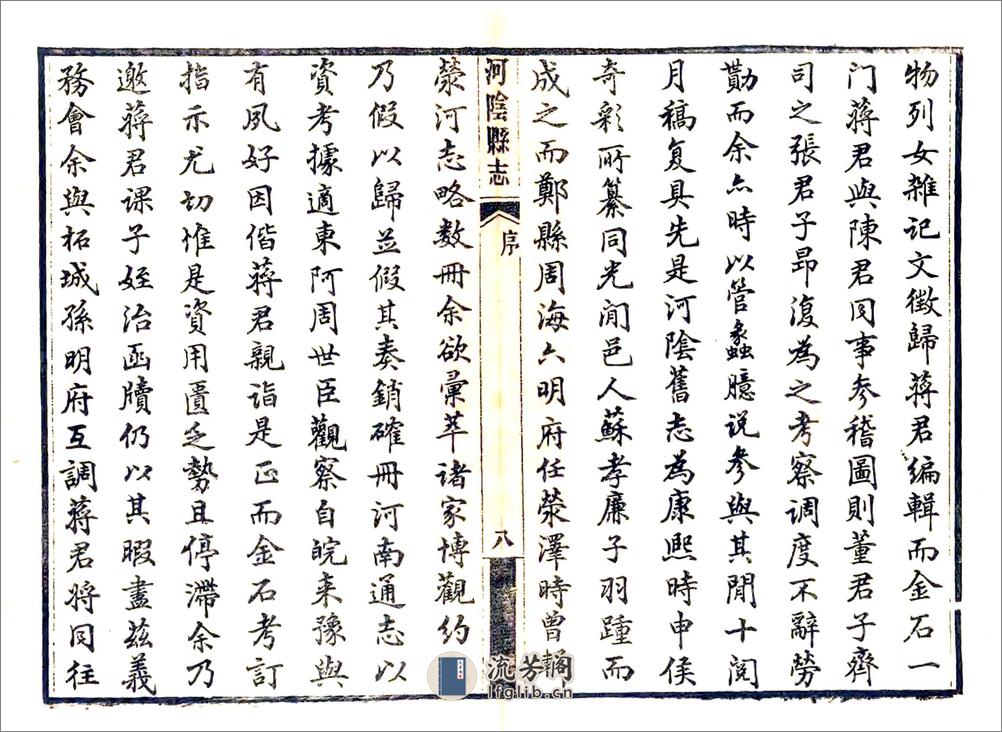 物列女雜記文徵歸蔣君编輯而金石一
门蔣君與陳君同事参稽圖則董君子齊
司之張君子昂復為之考察調度不辭勞
勩而余亦時以管蠡臆说参與其閒十阅
月稿复具先是河陰舊志為康熙時申侯
奇彩所纂同光间邑人蘇孝廉子羽踵而
成之而鄭縣周海六明府任滎澤時曾輯
河陰縣志
序
八
滎河志略数冊余欲彙萃诸家博觀约
乃假以歸並假其奏銷確冊河南通志以
資考據適東阿周世臣觀察自皖来豫與
有夙好因偕蔣君親诣是正而金石考訂
指示尤切惟是資用匱乏勢且停滯余乃
邀蔣君课子姪治函牘仍以其暇盡兹義
務會余與柘城孫明府互調蔣君将同往
流芳閣
lfglib.cn